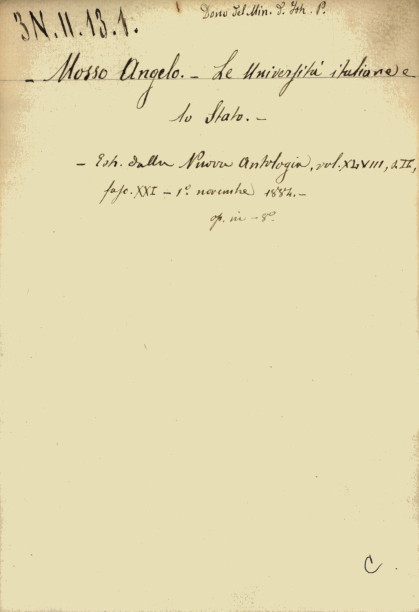 3N.II.13.1.
Dono del Min. d. Istr. P.
- Mosso Angelo. - Le Università italiane e
lo Stato. -
- Estr. dalla Nuova Antologia, vol. XLVIII, s. II,
fasc. XXI - 1º novembre 1884. -
op. in - 8º
C.